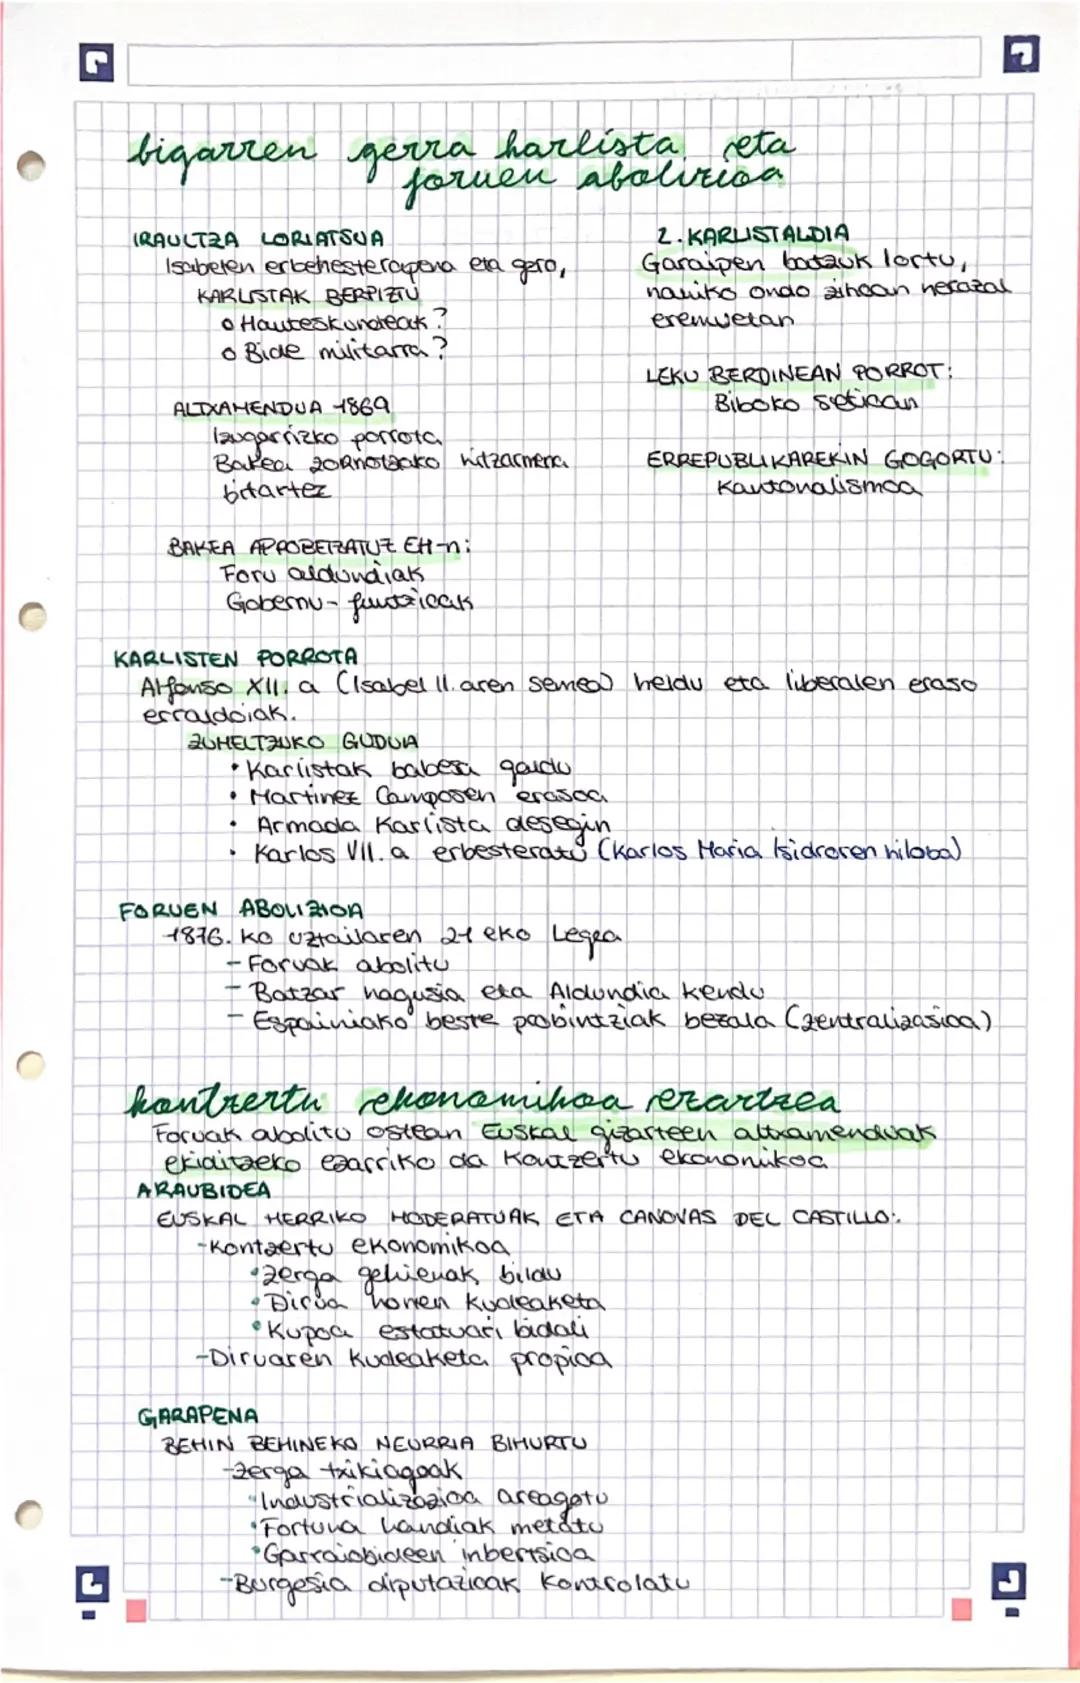 bigarren gerra karlista eta
foruen abolizioa
IRAULTZA LORIATSUA
Isabelen erbehesteragena eta gero,
KARLISTAK BERPIZTU
o Hauteskundeak?
o Bide militarra?
ALTXAMENDUA 1869
Izugarrizko porrota
Bakea zornotzako hitzarmena
bitartez
BAKEA APROBETZATUZ EH-n:
Foru aldundiak
Gobernu-funtzioak
2. KARLISTALDIA
Garaipen batzuk lortu,
nahiko ondo zihoan nekazal
eremuetan
LEKU BERDINEAN PORROT:
Bilboko setioan
ERREPUBLIKAREKIN GOGORTU:
Kantonalismoa
KARLISTEN PORROTA
Alfonso XII. a (Isabel II. aren semea) heldu eta liberalen eraso
erraldoiak.
ZUMELTZUKO GUDUA
• Karlistak babesa galdu
• Martinez Camposen erasoa
• Armada Karlista desegin
• Karlos VII. a erbesteratu (Karlos Maria Isidroren niloba)
FORUEN ABOLIZIOA
1876. ko uztailaren 21 eko Legea
- Foruak abolitu
- Batzar nagusia eta Aldundia kendu
- Espainiako beste probintziak bezala (zentralizasioa)
kontzertu ekonomikoa ezartzea
Foruak abolitu ostean Euskal gizarteen altxamenduak
ekiditzeko ezarriko da Kontzertu ekonomikoa
ARAUBIDEA
EUSKAL HERRIKO MODERATUAK ETA CANOVAS DEL CASTILLO:
-Kontzertu ekonomikoa
•Zerga gehienak bildu
•Dirua honen kudeaketa
•Kupoa estatuari bidali
-Diruaren kudeaketa propioa
GARAPENA
BEHIN BEHINEKO NEURRIA BIHURTU
-Zerga txikiagoak
•Industrializazioa areagotu
•Fortuna handiak metatu
•Garraiobideen inbertsioa
-Burgesia diputazioak kontrolatu